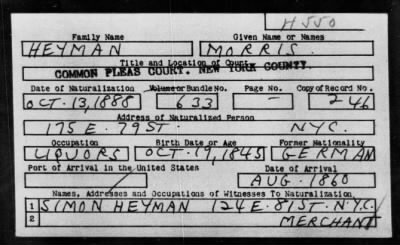 H550
Family Name Given Name or Names
HEYMAN MORRIS
Title and Location of Court
COMMON PLEAS COURT. NEW YORK COUNTY.
Date of Naturalization Volume or Bundle No. Page No. Copy of Record No.
OCT. 13, 1888 633 - 246
Address of Naturalized Person
175 E. 79 ST. N.Y.C.
Occupation Birth Date or Age Former Nationality
LIQUORS OCT. 19, 1845 GERMAN
Port of Arrival in the United States Date of Arrival
AUG. 1860
Names, Addresses and Occupations of Witnesses To Naturalization
1 SIMON HEYMAN 124 E. 81 ST. N.Y.C.
2 MERCHANT